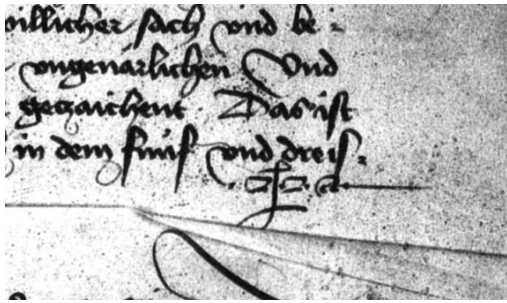 illicher sach vnd be
vngeuarlichen Vnd
gezaichent Das ist
in dem funf vnd dreiſ